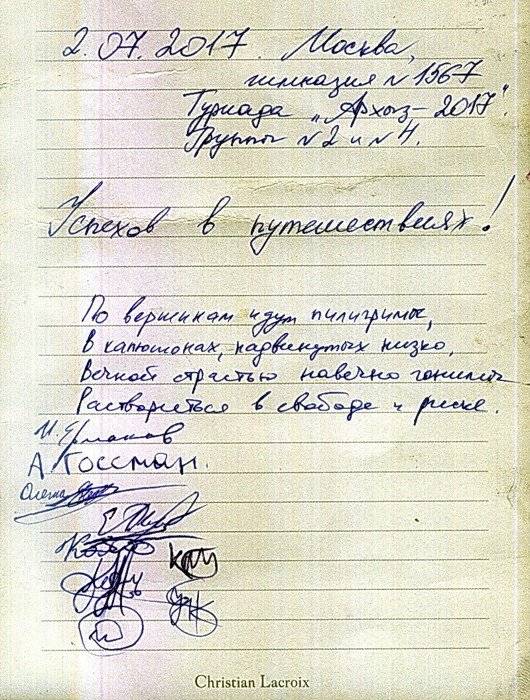 2.07.2017. Москва,
гимназия N 1567
Туриада „Архыз-2017".
Группы N 2 и N 4.
Успехов в путешествиях!
По вершинам идут пилигримы,
В капюшонах, надвинутых низко,
Вечной страстью навечно гонимы
Раствориться в свободе и риске.
И. Ермаков
А. Госсман.
Christian Lacroix